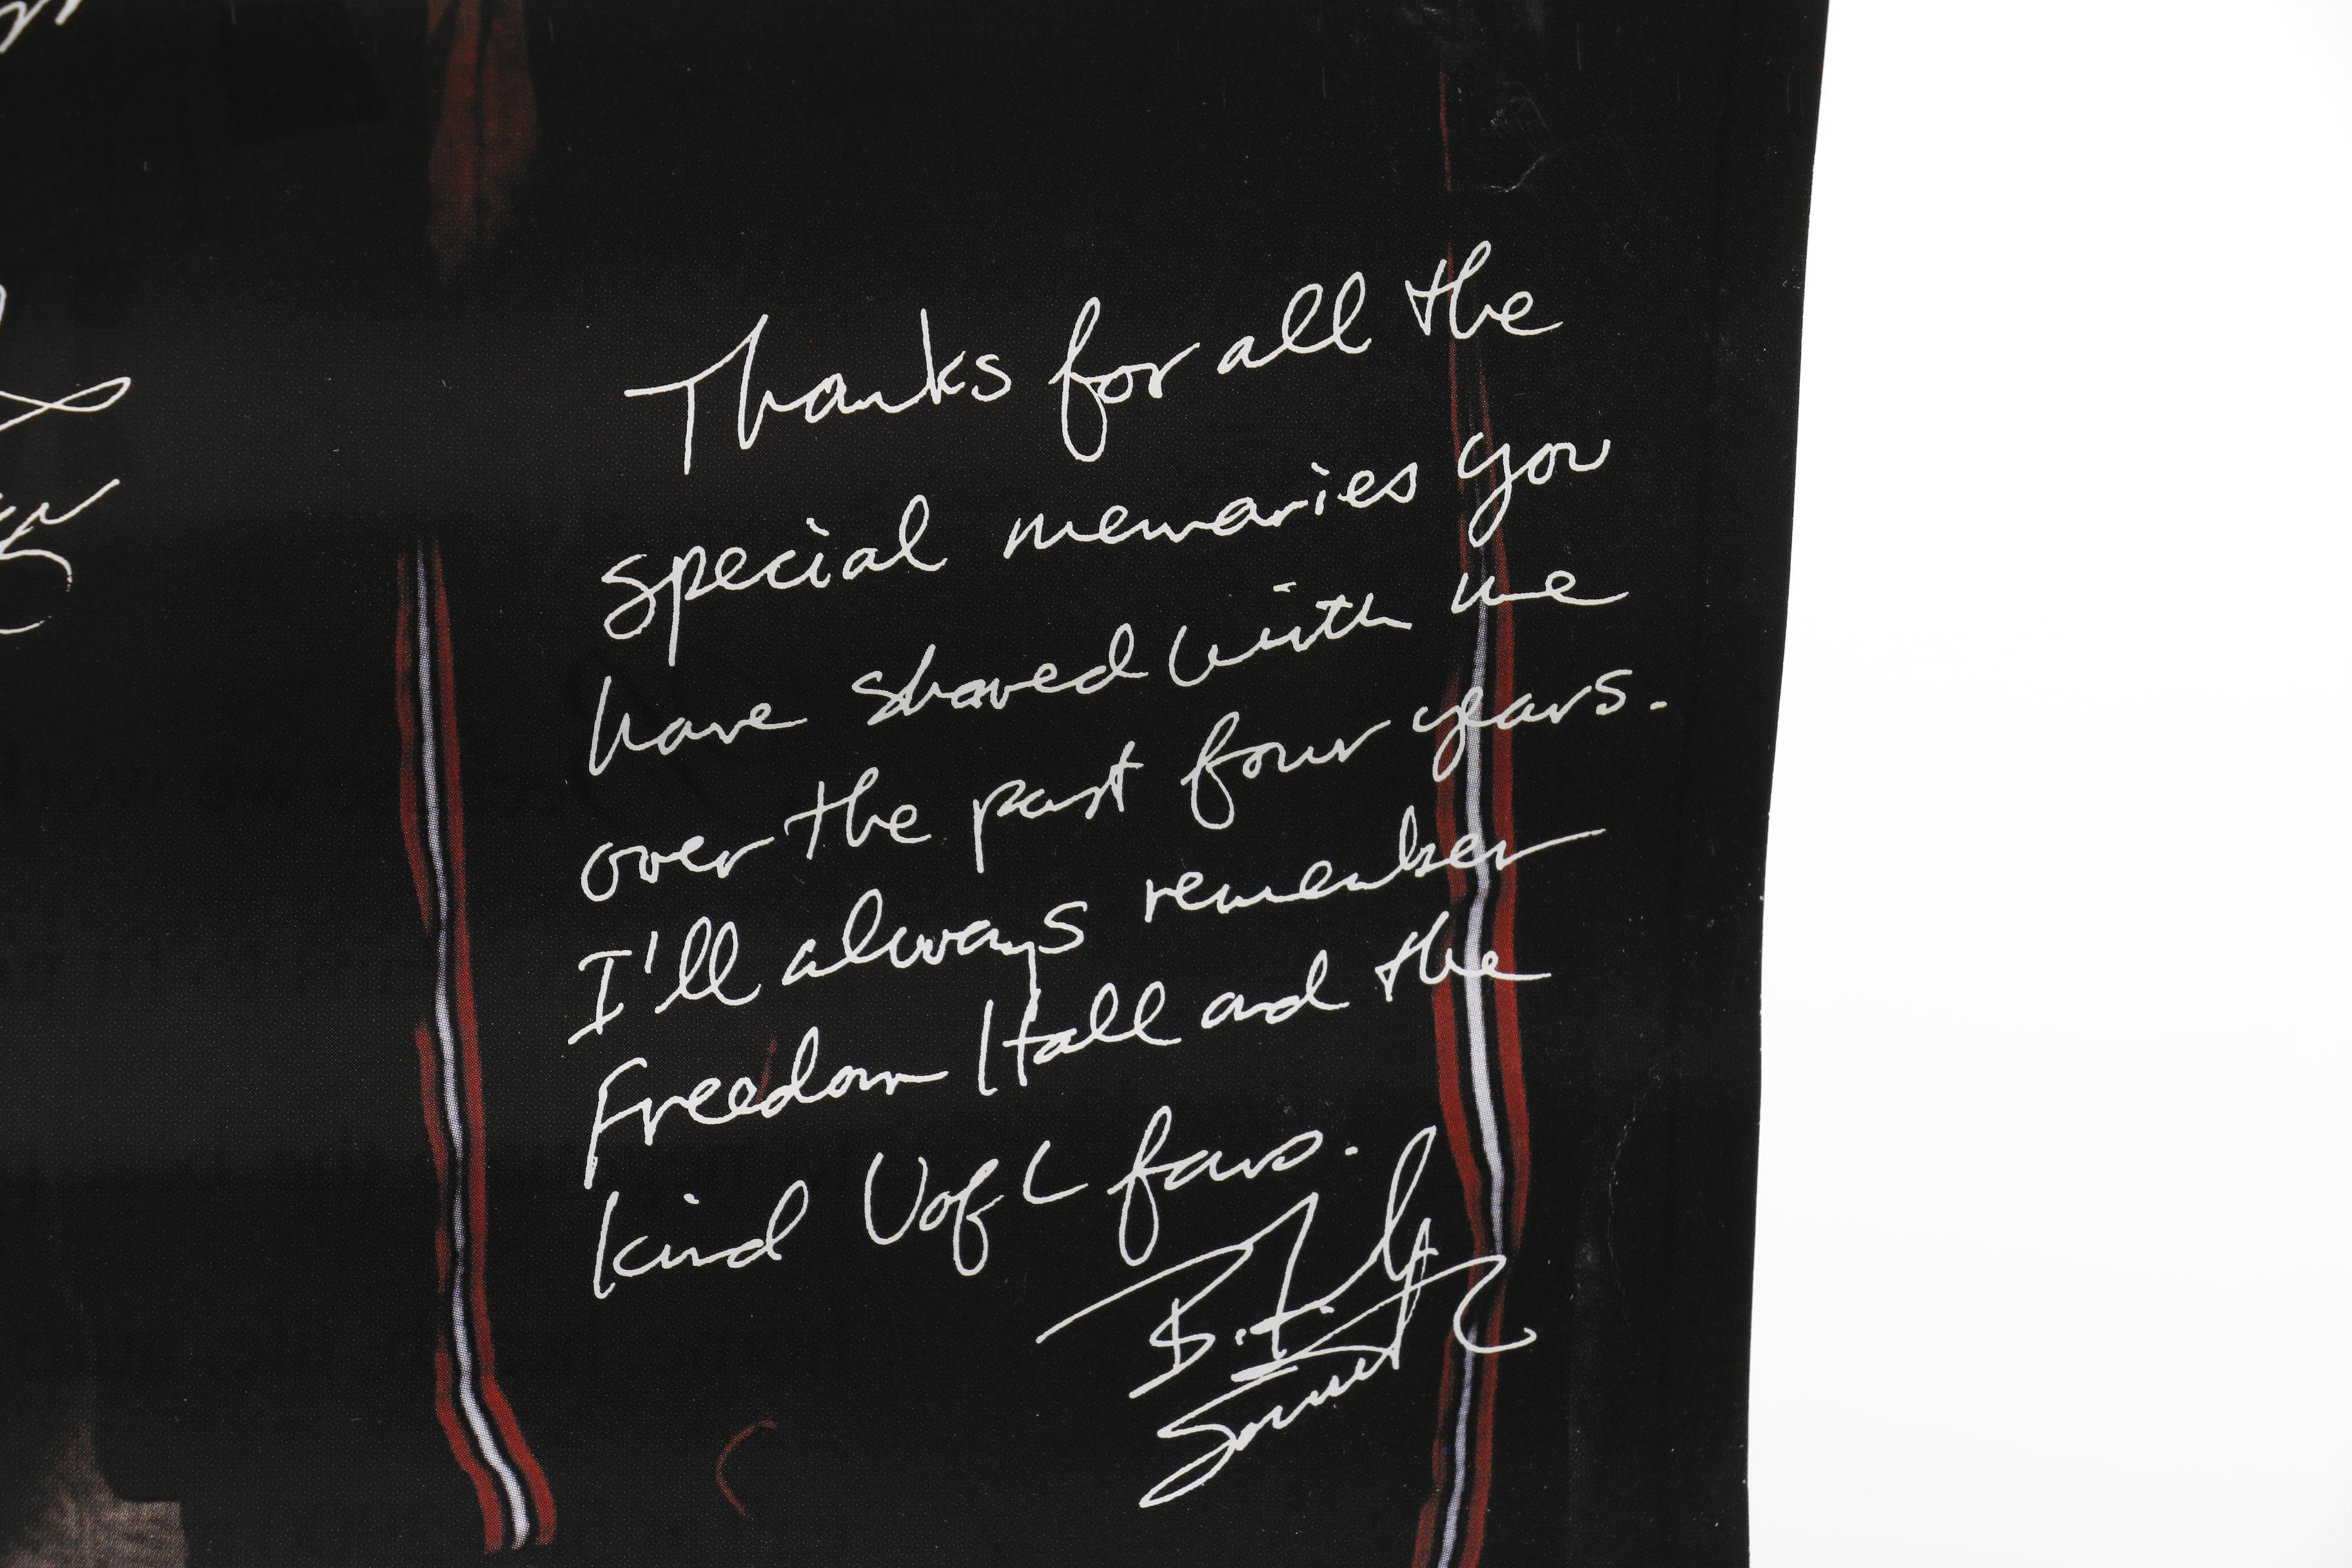 Thanks for all the
special memories you
have shared with me
over the past four years.
I'll always remember
Freedom Hall and the
kind UofL fans.